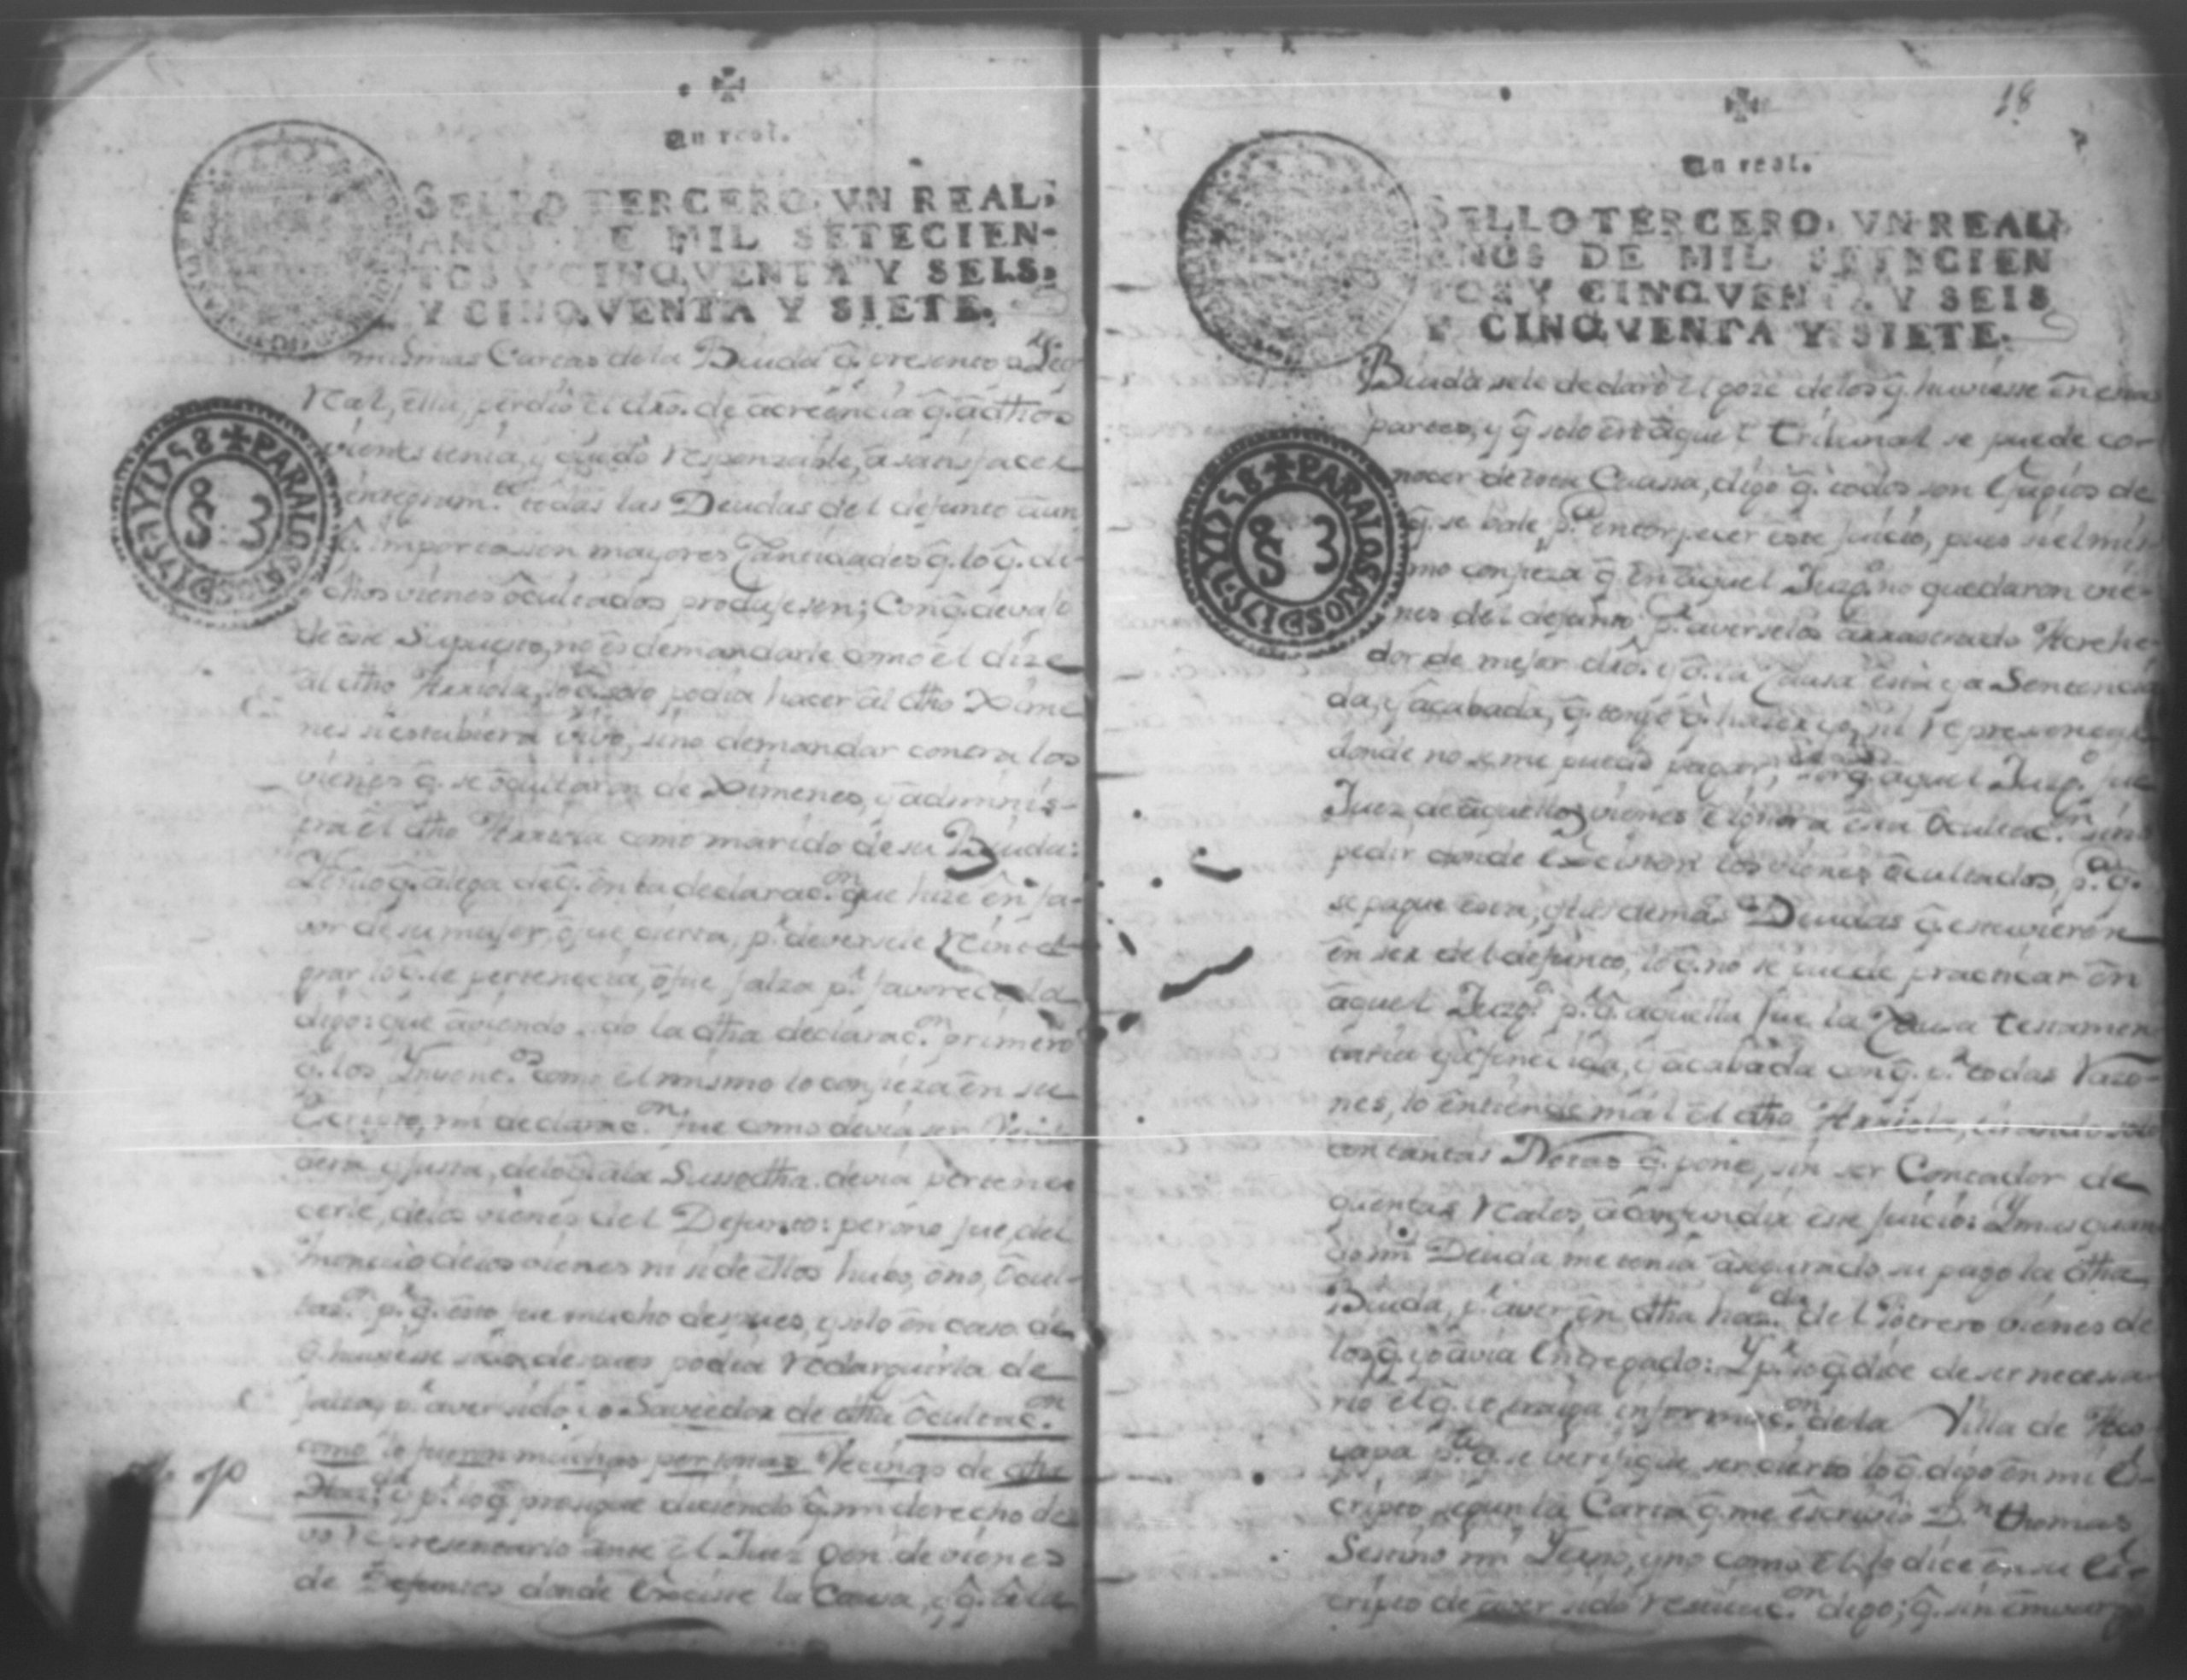 Un real.
SELLO TERCERO, VN REAL,
ANOS DE MIL SETECIEN-
TOS Y CINQVENTA Y SEIS,
Y CINQVENTA Y SIETE.
PARA LOS AÑOS D 175 7 Y 1758
S 3
mismas Cartas de la Biuda q̃. presento
Real, ella, perdio el dro. de acreencia q̃. a dhos
vienes tenia, y quedó responzable, a sansfacer
integram.te todas las Deudas del defunto aun
q̃. importasen mayores Cantidades q̃. lo q̃. di-
chos vienes ôcultados produjesen; Con q̃. devajo
de este Supuesto, no es demandarle como el dize
al dho Arriola, lo q̃. solo podia hacer al dho Xime
nes si estubiera vivo, sino demandar contra los
vienes q̃. se ocultaron de Ximenes, y adminis-
tra el dho Arriola como marido de su Biuda:
q̃. alega de q̃. en la declarac.on que hize en fa-
vor de su mujer, ô fue cierta, p.r deversele Reinte
grar lo q̃. le pertenecia, ô fue falza p.r favorecerla
digo: que aviendo sido la dha declarac.on primero
q̃. los Invent.os como el mismo lo confieza en su
Escripto, mi declarac.on fue como devia ser Verda
dera y justa, de lo q̃. a la Sussodha. devia pertene
cerle, de los vienes del Defunto: pero no fue, del
monto de los vienes ni si de ellos hubo, ô no, Ocul-
tac.on p.r q̃. esto fue mucho despues, y solo en caso de
q̃. huviese sido despues podia redarguirla de
falza, p.r aver sido yo Saviedor de dha Ocultac.on
como lo fueron muchas personas Vecinas de dha
Haz.da y p.r lo q̃. prosigue diciendo q̃. mi derecho de
vo representarlo ante el Juez Gen. de vienes
de Defuntos donde Exciste la Causa, y q̃. â la
18
Un real.
SELLO TERCERO, VN REAL,
ANOS DE MIL SETECIEN
TOS Y CINQVENTA Y SEIS
Y CINQVENTA Y SIETE.
PARA LOS AÑOS D 175 7 Y 1758
S 3
Biuda se le declaró el goze de los q̃. huviesse en estas
partes, y q̃. solo en aquel tribunal se puede co-
nocer de esta Causa, digo q̃. todos son Efugios de
q̃. se bale p.a entorpecer este juicio, pues si el mis-
mo confieza q̃. en aquel Juzg.o no quedaron vie-
nes del defunto p.r averselos arrastrado Acrehe-
dor de mejor dro. y q̃. la Causa está ya Sentencia
da, y acabada, q̃. tengo q̃. hacer yo, ni representar
donde no se me puede pagar, aquel Juzg.o fue
Juez de aquellos vienes e ignora esta Ocultac.on sino
pedir donde Existen los vienes ocultados, p.a q̃.
se pague esta, y las demas Deudas q̃. estuvieron
en ser del defunto, lo q̃. no se puede practicar en
aquel Juzg.o p.r q̃. aquella fue la Causa testamen
taria ya fenecida, y acabada con q̃. p.r todas razo-
nes, lo entiende mal el dho Arriola, tirando solo
con tantas Notas q̃. pone, sin ser Contador de
quentas reales, a confundir este juicio: Y mas quan
do mi Deuda me tenia asegurado su pago la dha
Biuda, p.r aver en dha haz.da del Potrero vienes de
los q̃. yo avia Entregado: Y p.r lo q̃. dice de ser necesa
rio el q̃. se traiga informac.on de la Villa de
p.a q̃. se verifique ser cierto lo q̃. digo en mi Es-
cripto segun la Carta q̃. me escrivió D.n thomas
Sestino mi Yerno, y no como el lo dice en su Es-
cripto de aver sido restituc.on digo; q̃. sin embargo